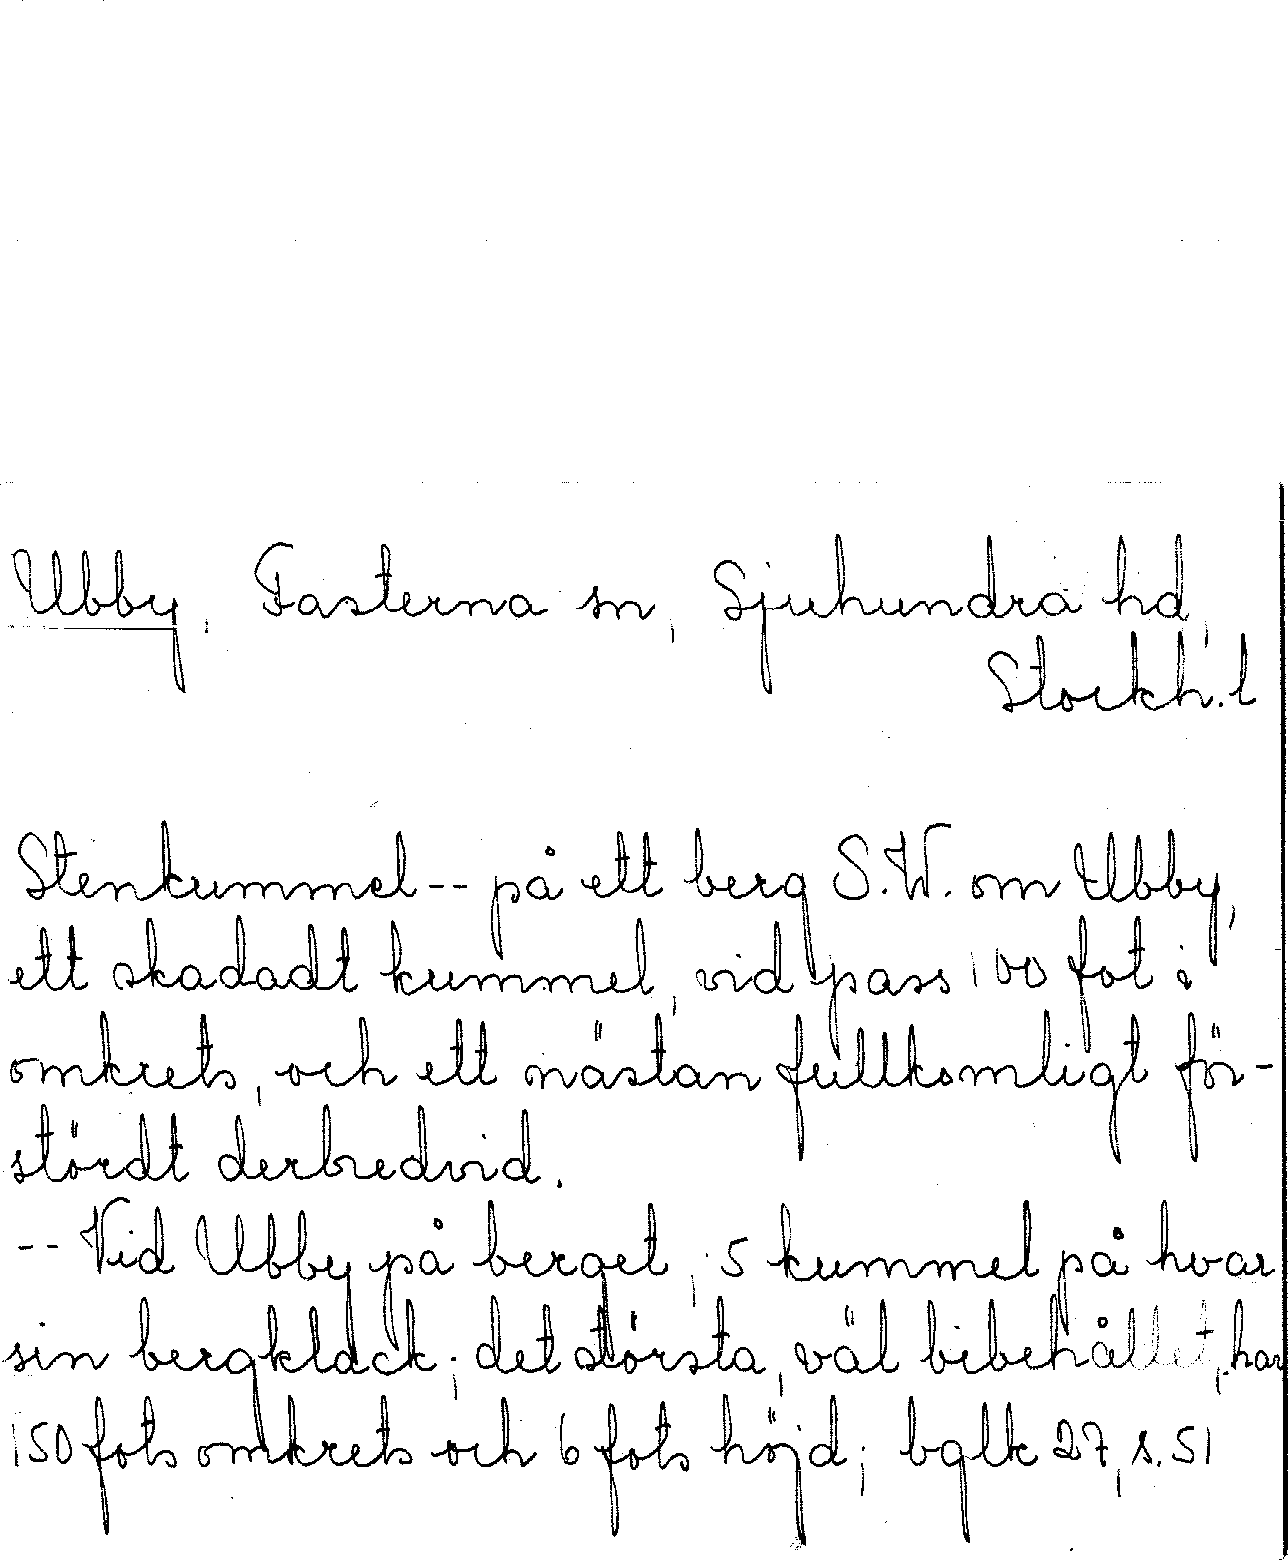 Ubby, Fasterna sn, Sjuhundra hd,
Stockh. l
Stenkummel -- på ett berg S.W. om Ubby,
ett skadadt kummel, vid pass 100 fot i
omkrets, och ett nästan fullkomligt för-
stördt derbredvid.
-- Vid Ubby på berget, 5 kummel på hvar
sin bergklack; det största, väl bibehållet, har
150 fots omkrets och 6 fots höjd; bglk 27, s. 51